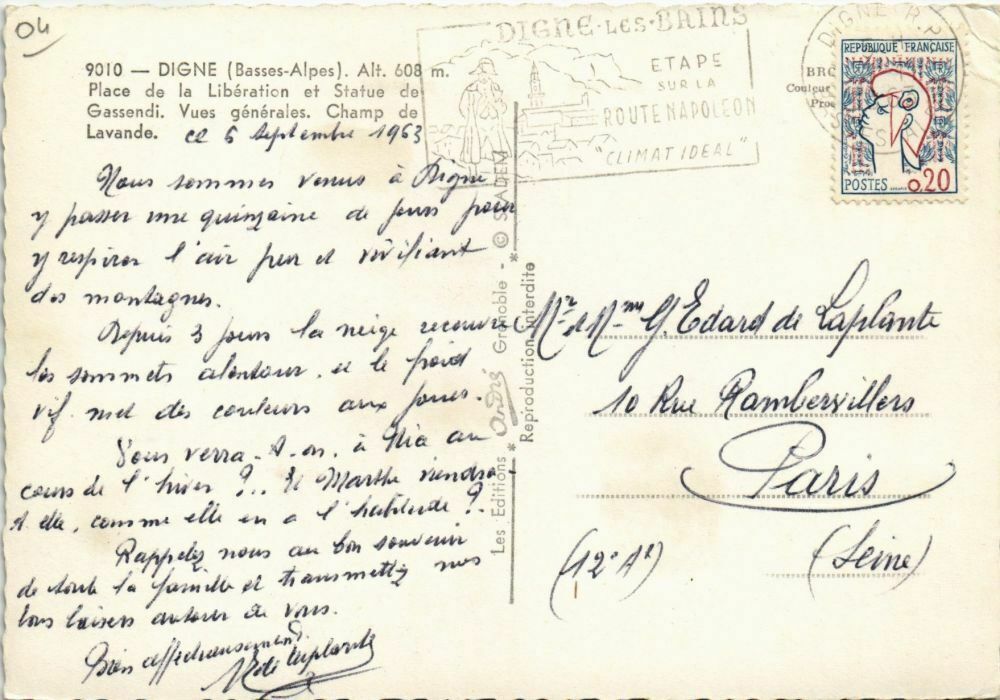 04
9010 — DIGNE (Basses-Alpes). Alt. 608 m.
Place de la Libération et Statue de
Gassendi. Vues générales. Champ de
Lavande.
ce 6 Septembre 1963
Nous sommes venus à Digne
y passer une quinzaine de jours pour
y respirer l'air pur et vivifiant
des montagnes.
Depuis 3 jours la neige recouvre
les sommets alentour, et le froid
vif met des couleurs aux joues.
Vous verra-t-on, à au
cours de l'hiver ?.. Et Marthe viendra
t elle, comme elle en a l'habitude ?.
Rappelez nous au bon souvenir
de toute la famille et transmettez nos
bons baisers autour de vous.
Bien affectueusement
de Laplante
Les Editions André Grenoble - ©
Reproduction Interdite
DIGNE-LES-BAINS
ETAPE
SUR LA
ROUTE NAPOLEON
"CLIMAT IDEAL"
DIGNE R.P.
REPUBLIQUE FRANÇAISE
POSTES
0,20
Mr et Mme G. Edard de Laplante
10 Rue Rambervillers
Paris
(12e Ar)
(Seine)